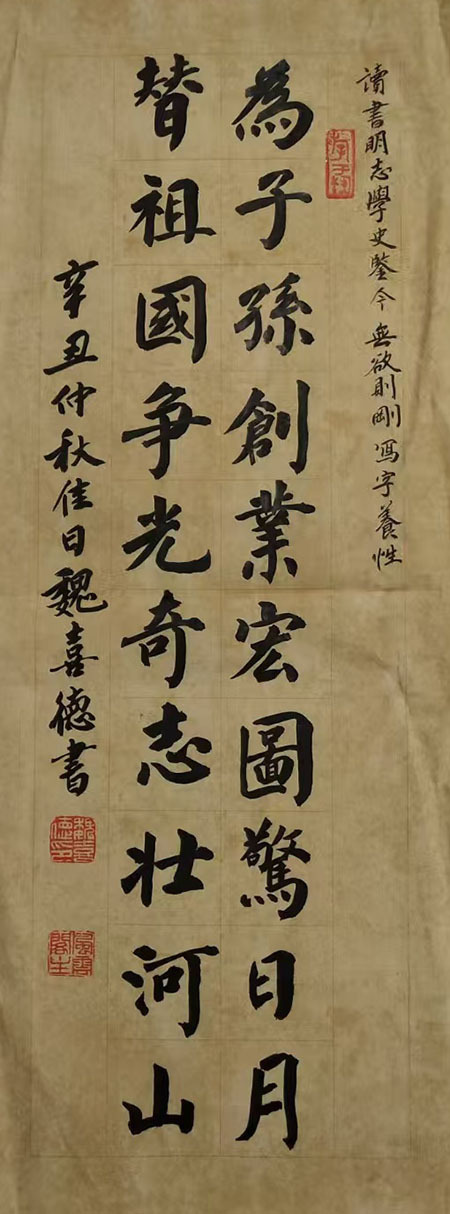 讀書明志學史鑒今無欲則剛寫字養性
為子孫創業宏圖驚日月
替祖國爭光奇志壯河山
辛丑仲秋佳日魏喜德書
魏喜德印